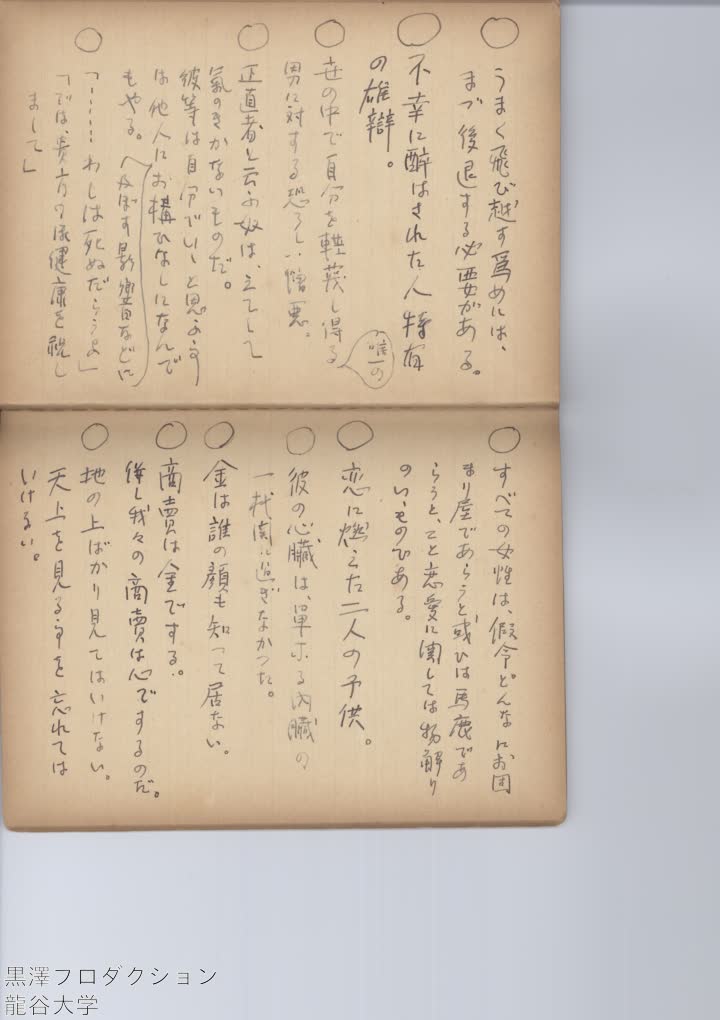 うまく飛び越す為めには、
まづ後退する必要がある。
不幸に酔はされた人特有
の雄辯。
世の中で自分を軽蔑し得る
唯一の
男に対する恐ろしい憎悪。
正直者と云ふ奴は、えてして
氣のきかないものだ。
彼等は自分でいゝと思ふ事
は他人にお構ひなしになんで
もやる。(及ぼす影響などに
「……わしは死ぬだらうよ」
「では、貴方の御健康を祝し
まして」
すべての女性は、假令どんなにお困
まり屋であらうと或ひは馬鹿であ
らうと、こと恋愛に関しては物解り
のいゝものである。
恋に燃えた二人の子供。
彼の心臓は、単なる内臓の
一機関に過ぎなかつた。
金は誰の顔も知って居ない。
商賣は金でする。
然し我々の商賣は心でするのだ。
地の上ばかり見てはいけない。
天上を見る事を忘れては
いけない。
黒澤プロダクション
龍谷大学